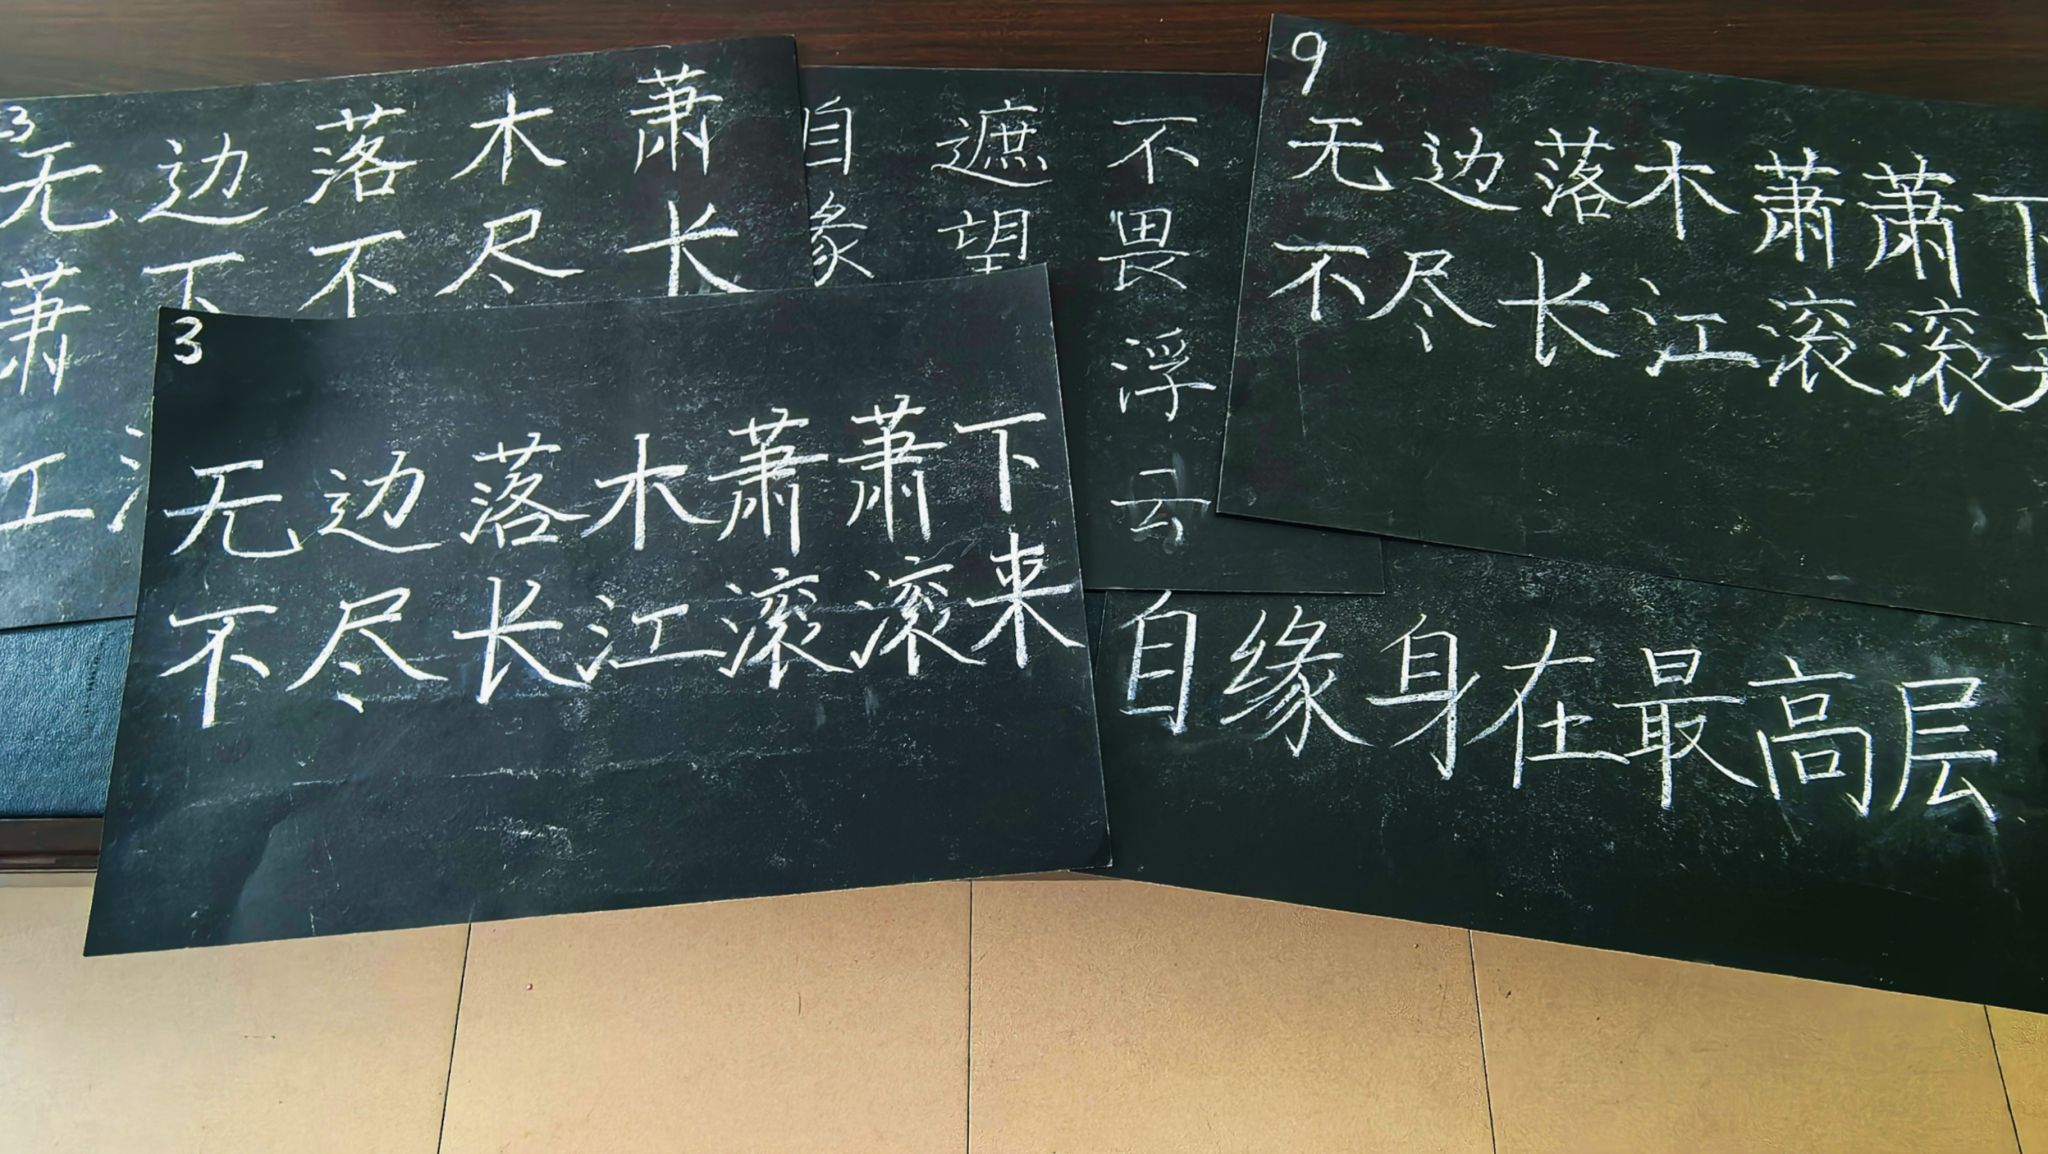 3
无边落木萧
萧下不尽长
江
不畏浮云
遮望
自缘
9
无边落木萧萧下
不尽长江滚滚来
3
无边落木萧萧下
不尽长江滚滚来
自缘身在最高层